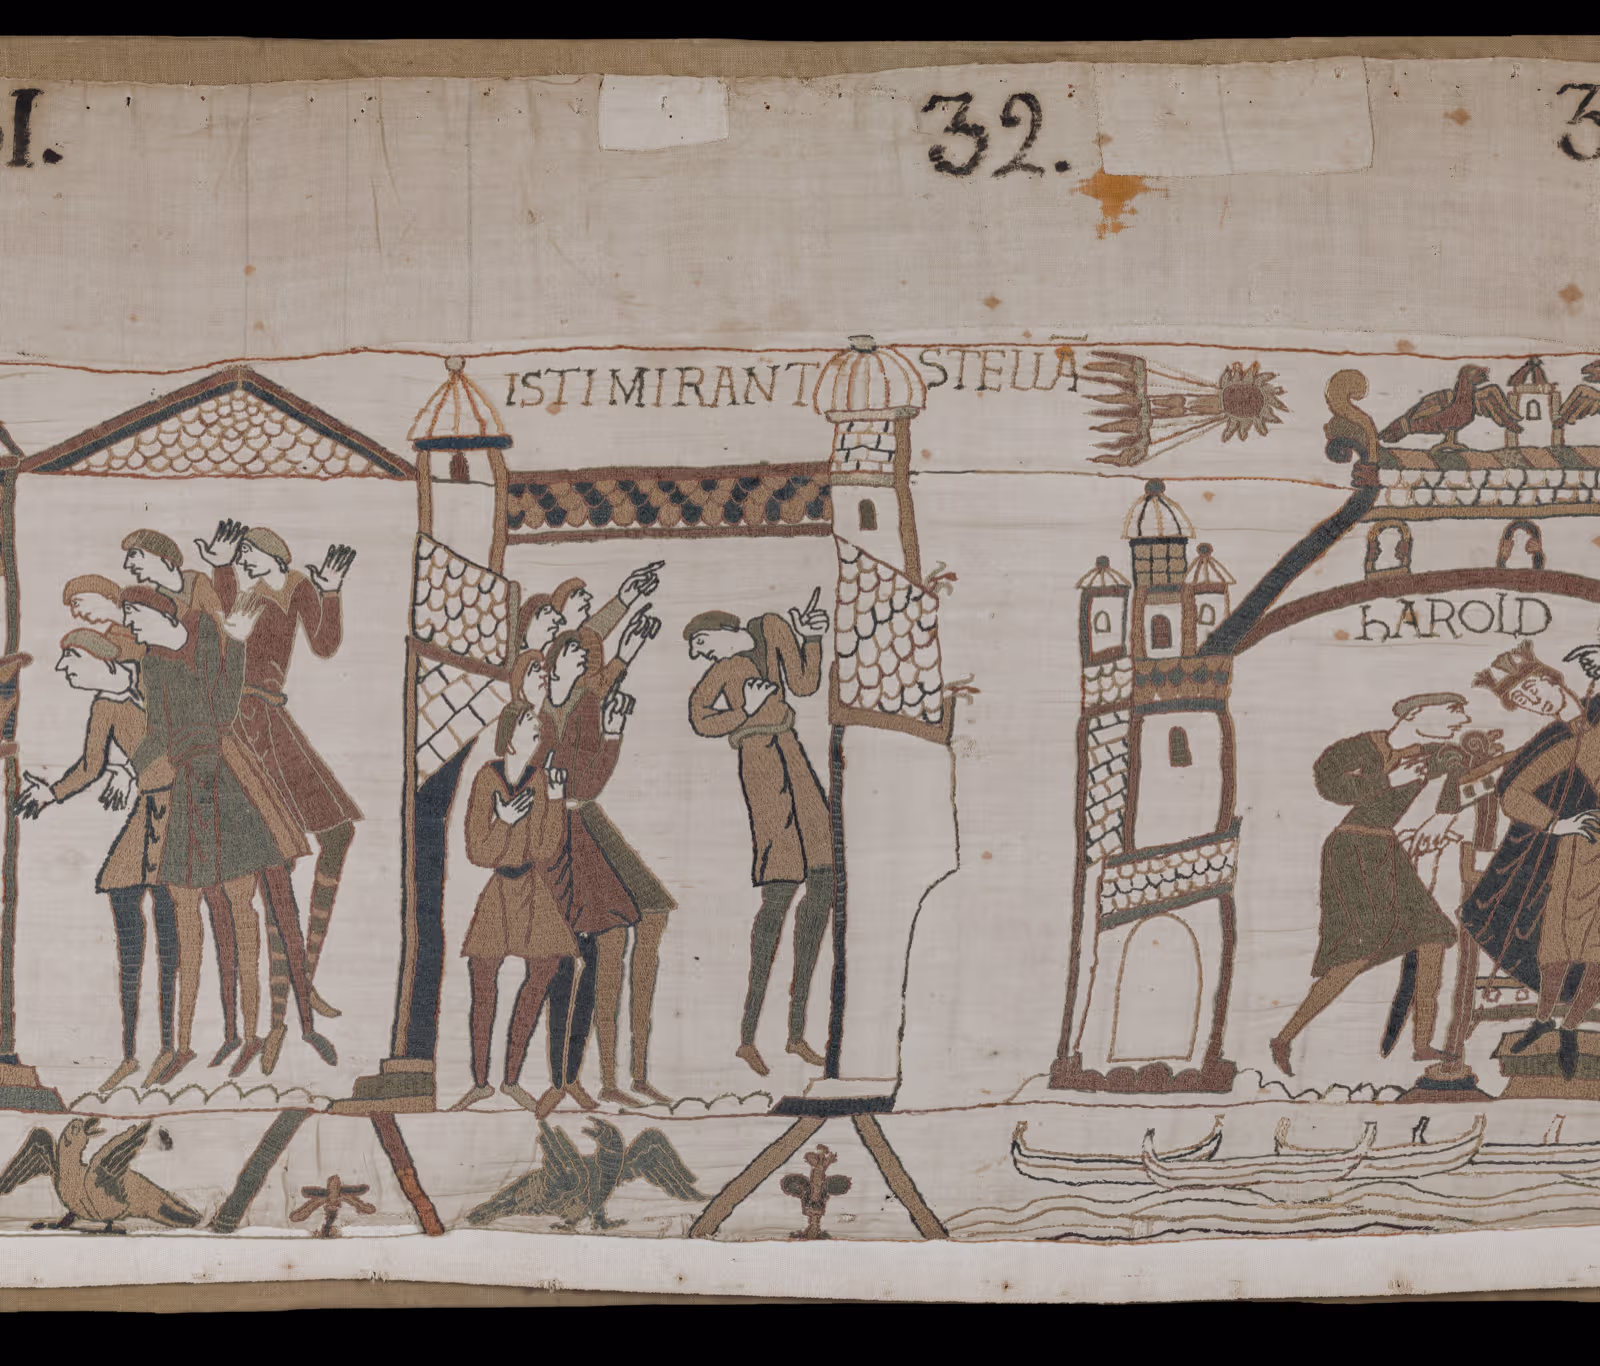 31.
32.
3
ISTI MIRANT STELLĀ
hAROLD